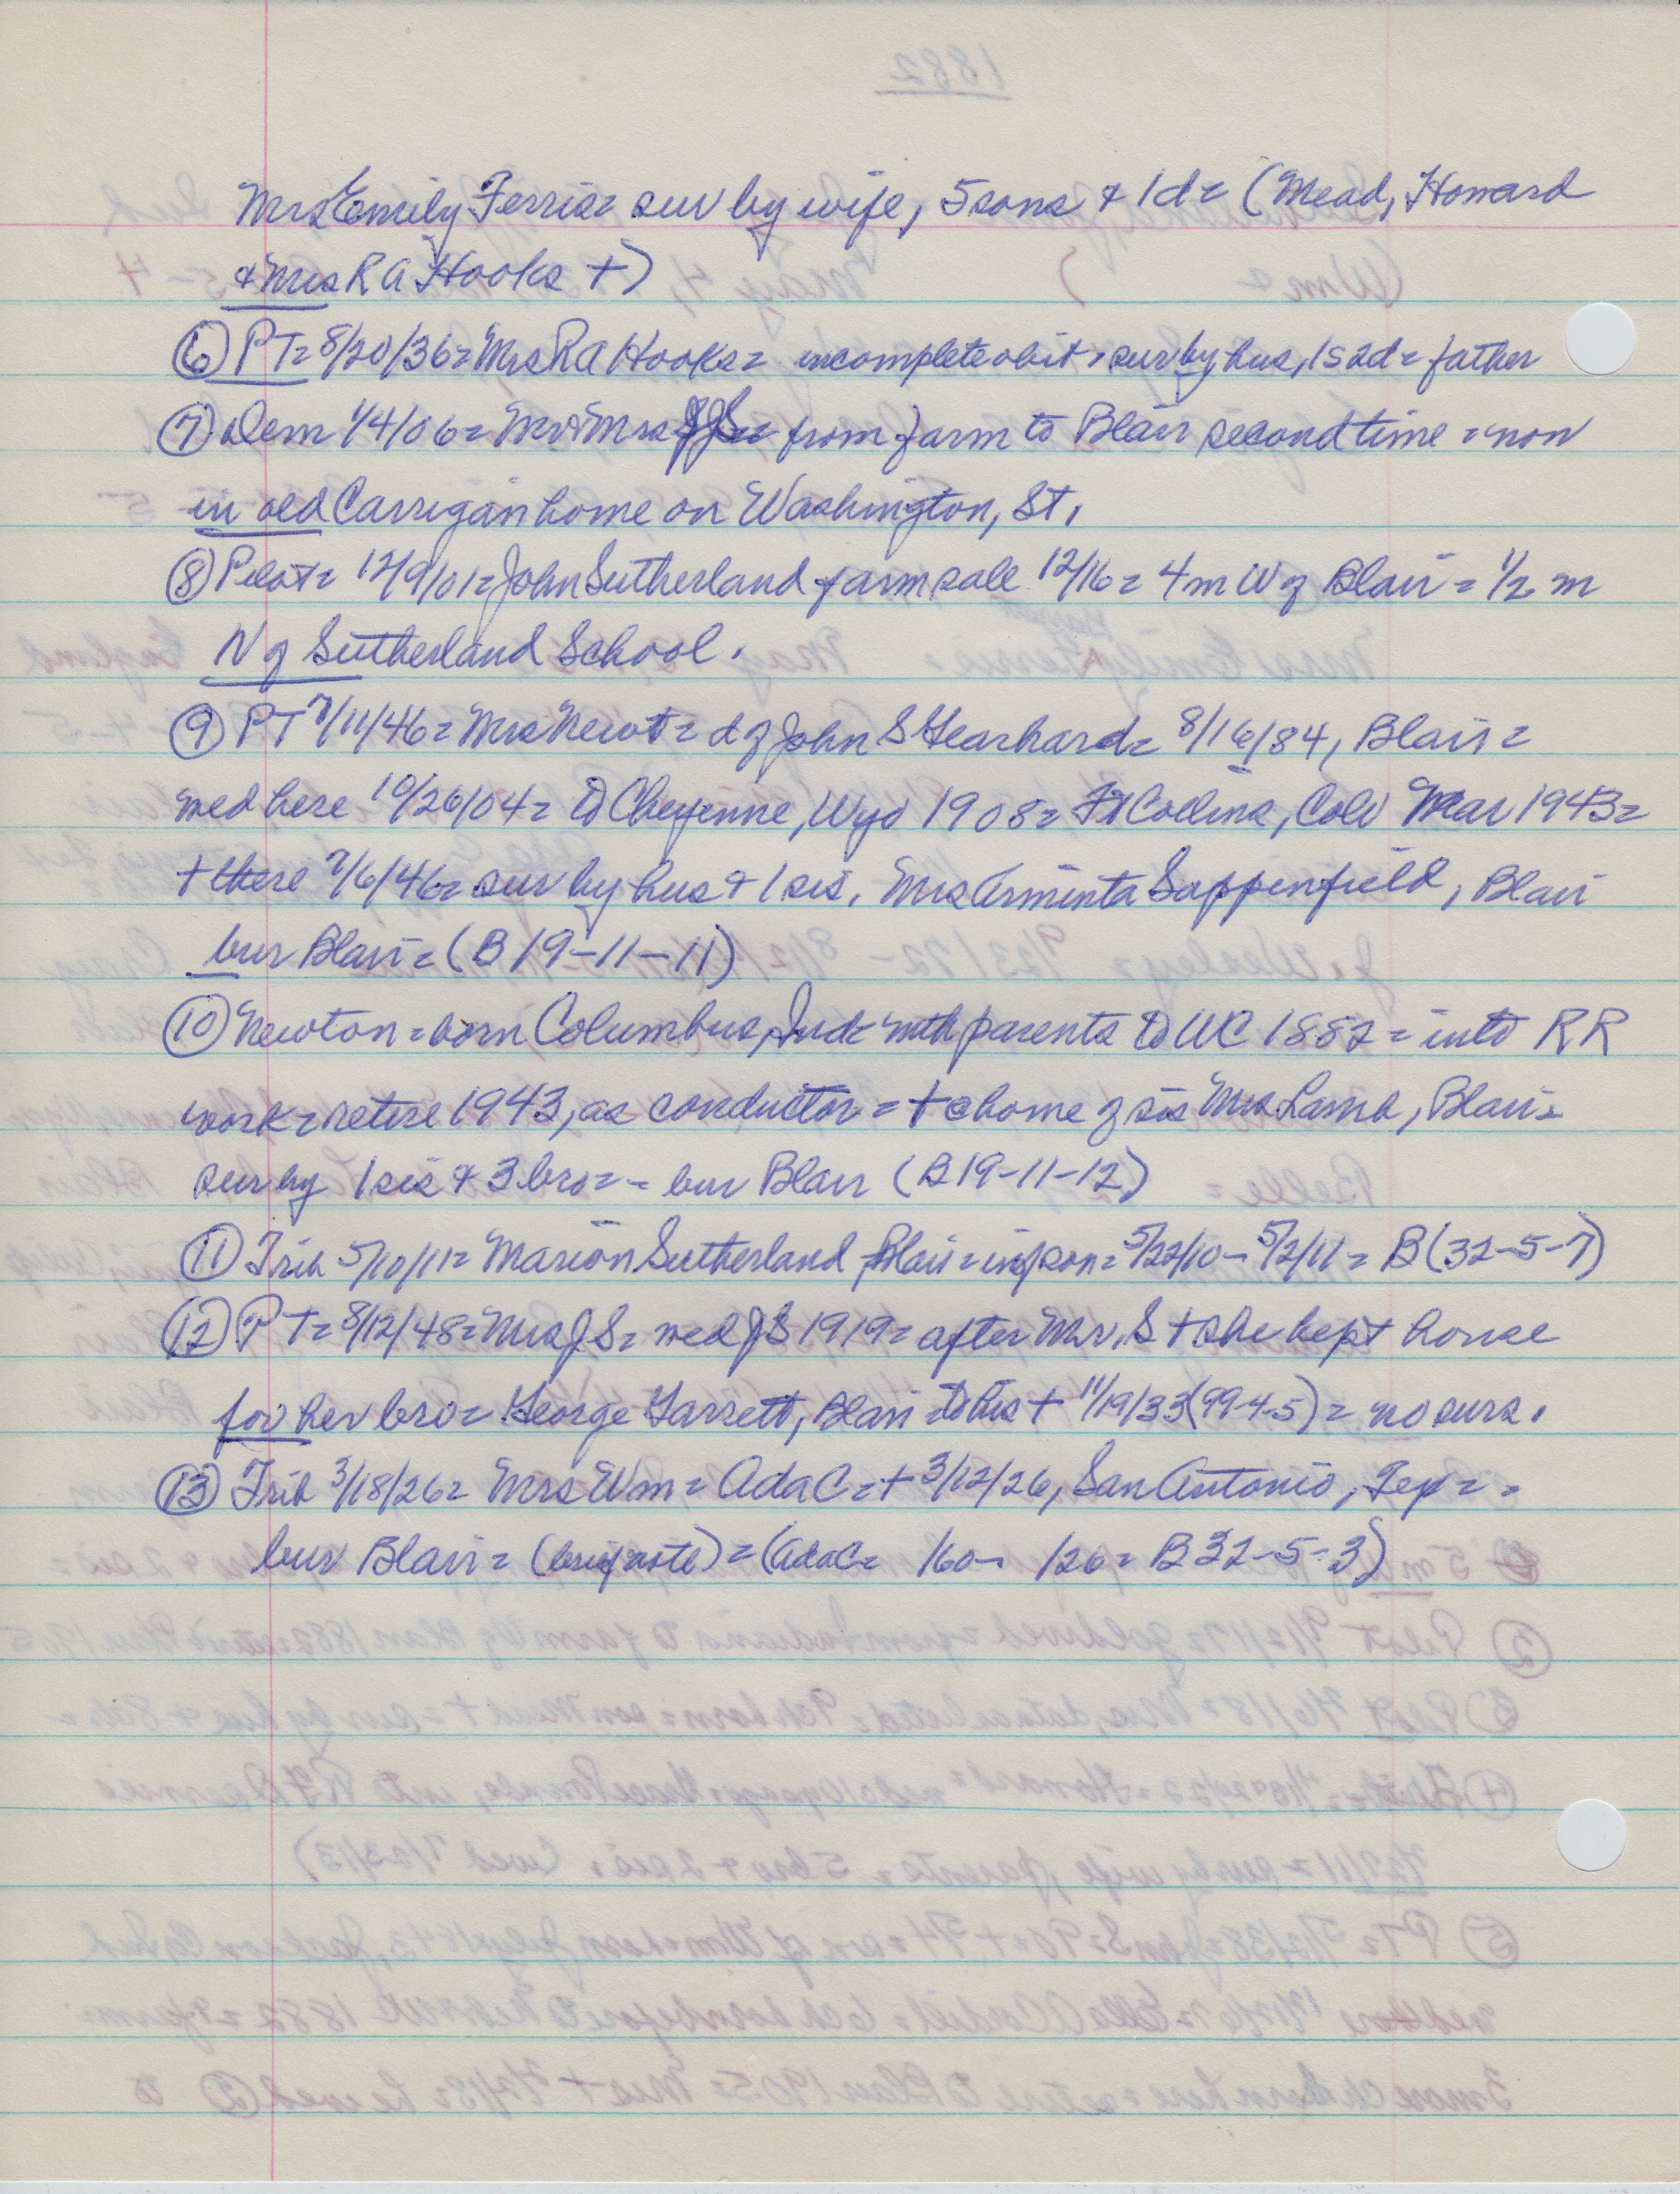 Mrs Emily Ferris= sur by wife, 5 sons + 1d= (Mead, Howard
+ Mrs R A Hooks +)
⑥ PT= 8/20/36= Mrs RA Hooks= incomplete obit = sur by hus, 1s 2d = father
⑦ Dem 1/4/06= Mr + Mrs JS= from farm to Blair second time = now
in old Carrigan home on Washington, St.
⑧ Pilot= 12/9/01= John Sutherland farm sale 12/16= 4m W of Blair = 1/2 m
N of Sutherland School.
⑨ PT 7/11/46= Mrs Newt= d of John S Gearhard= 8/16/84, Blair=
med here 10/26/04= to Cheyenne, Wyo 1908= Ft Collins, Colo Mar 1943=
+ there 7/6/46= sur by hus + 1 sis, Mrs Arminta Sappenfield, Blair
bur Blair= (B 19-11-11)
⑩ Newton= born Columbus, Ind= with parents to WC 1882= into RR
work= retire 1943, as conductor = + @ home of sis Mrs Lamb, Blair=
sur by 1 sis + 3 bro= - bur Blair (B 19-11-12)
⑪ Trib 5/10/11= Marion Sutherland Blair= inf son= 5/22/10- 5/2/11= B(32-5-7)
⑫ PT= 8/12/48= Mrs J S= med JS 1919= after Mr. S + she kept house
for her bro= George Garrett, Blair to his + 11/19/33 (99-4-5) = no surs.
⑬ Trib 3/18/26= Mrs Wm= Ada C= + 3/12/26, San Antonio, Tex= =
bur Blair= (brief note) = (Ada C= 160- 126= B 32-5-3)